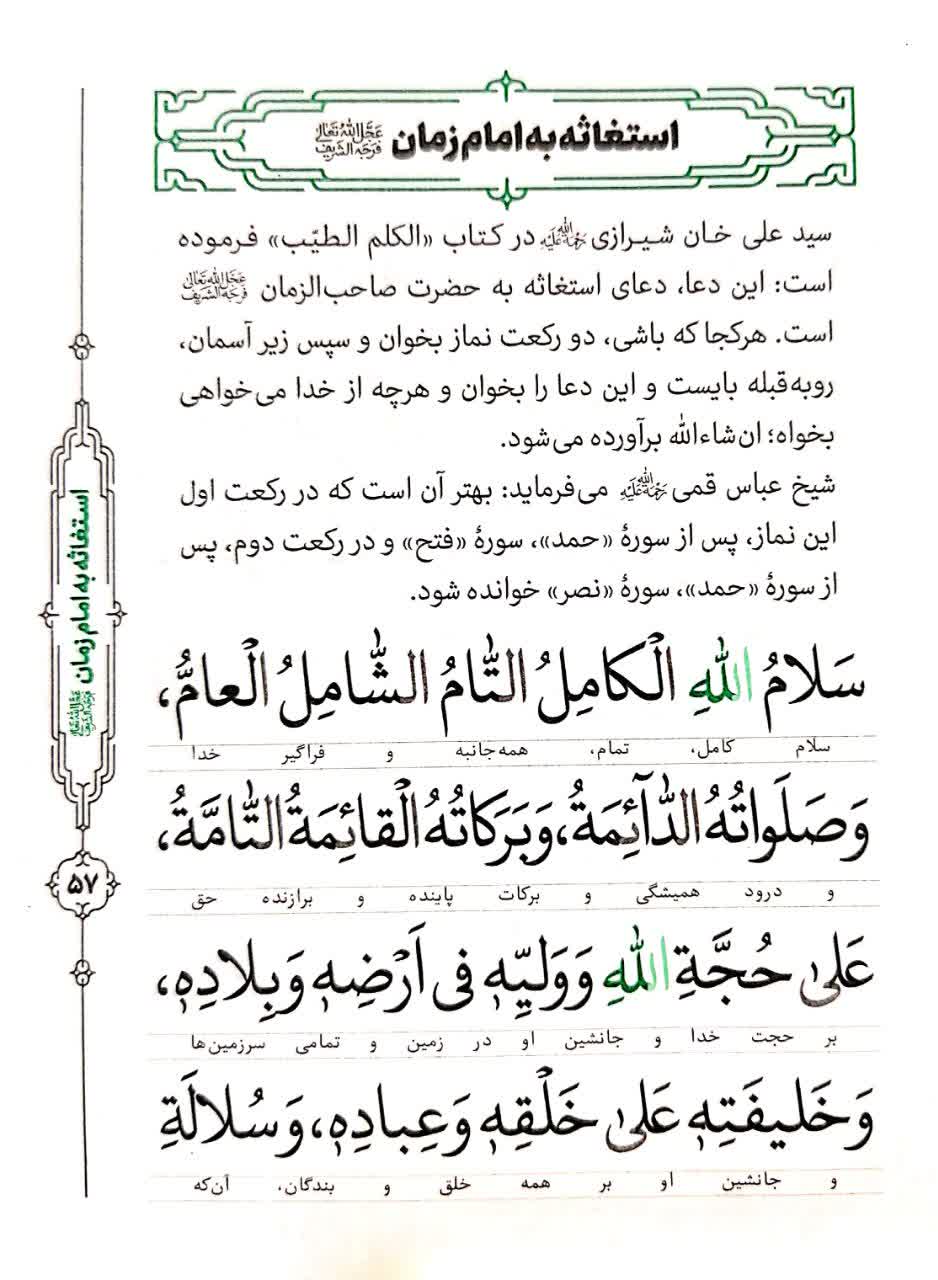 استغاثه به امام زمان عَجَّلَ اللهُ تَعَالىٰ فَرَجَهُ الشَّرِيف
سید علی خان شیرازی رَحْمَةُ اللهِ عَلَيْه در کتاب «الکلم الطیّب» فرموده
است: این دعا، دعای استغاثه به حضرت صاحب‌الزمان عَجَّلَ اللهُ تَعَالىٰ فَرَجَهُ الشَّرِيف
است. هرکجا که باشی، دو رکعت نماز بخوان و سپس زیر آسمان،
روبه‌قبله بایست و این دعا را بخوان و هرچه از خدا می‌خواهی
بخواه؛ ان‌شاءالله برآورده می‌شود.
شیخ عباس قمی رَحْمَةُ اللهِ عَلَيْه می‌فرماید: بهتر آن است که در رکعت اول
این نماز، پس از سورهٔ «حمد»، سورهٔ «فتح» و در رکعت دوم، پس
از سورهٔ «حمد»، سورهٔ «نصر» خوانده شود.
سَلامُ اللهِ الْكامِلُ التّٰامُّ الشّٰامِلُ الْعامُّ،
سلام کامل، تمام، همه‌جانبه و فراگیر خدا
وَصَلَواتُهُ الدّٰآئِمَةُ، وَبَرَكاتُهُ الْقائِمَةُ التّٰامَّةُ،
و درود همیشگی و برکات پاینده و برازنده حق
عَلىٰ حُجَّةِ اللهِ وَوَلِيِّهٖ فى اَرْضِهٖ وَبِلادِهٖ،
بر حجت خدا و جانشین او در زمین و تمامی سرزمین‌ها
وَخَليفَتِهٖ عَلىٰ خَلْقِهٖ وَعِبادِهٖ، وَسُلالَةِ
و جانشین او بر همه خلق و بندگان، آن‌که
استغاثه به امام زمان عَجَّلَ اللهُ تَعَالىٰ فَرَجَهُ الشَّرِيف
۵۷